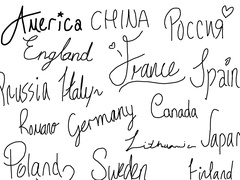 America CHINA Россия
England France Spain
Prussia Italy
Romano Germany Canada
Lithuania Japan
Poland Sweden Finland